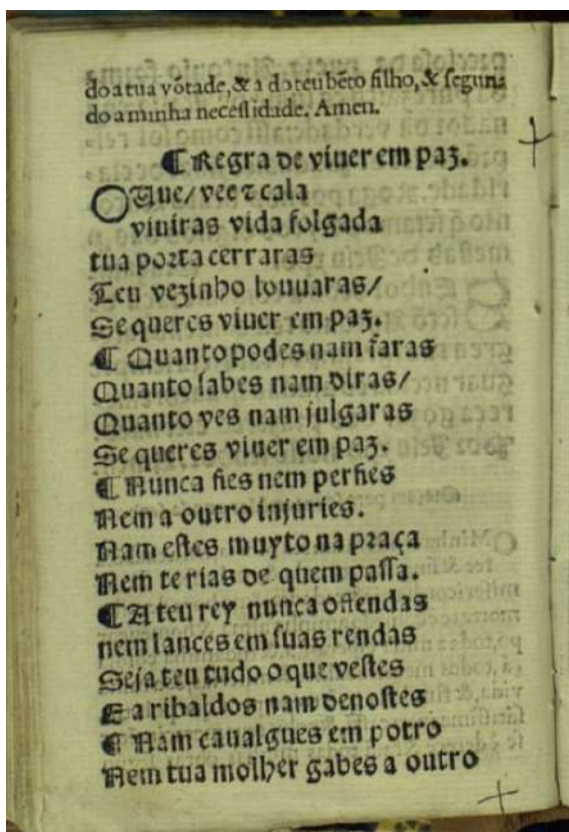 do a tua võtade, & a do teu bẽto filho, & segun
do a minha necessidade. Amen.
¶ Regra de viuer em paz.
Ouue/ vee ⁊ cala
viuiras vida folgada
tua porta cerraras
Teu vezinho louuaras/
Se queres viuer em paz.
¶ Quanto podes nam faras
Quanto sabes nam diras/
Quanto ves nam julgaras
Se queres viuer em paz.
¶ Nunca fies nem perfies
Nem a outro injuries.
Nam estes muyto na praça
Nem te rias de quem passa.
¶ A teu rey nunca offendas
nem lances em suas rendas
Seja teu tudo o que vestes
E a ribaldos nam denostes
¶ Nam caualgues em potro
Nem tua molher gabes a outro